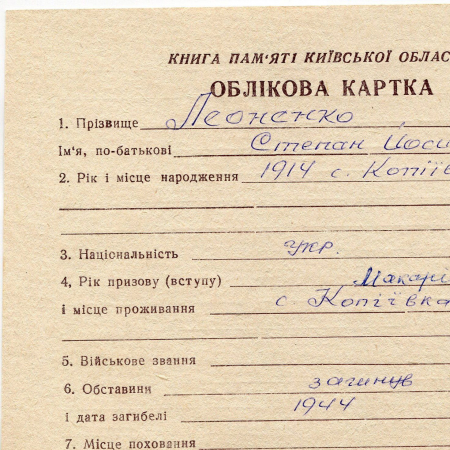 КНИГА ПАМ'ЯТІ КИЇВСЬКОЇ ОБЛАС
ОБЛІКОВА КАРТКА
1. Прізвище Леоненко
Ім'я, по-батькові Степан Йоси
2. Рік і місце народження 1914 с. Копіїв
3. Національність укр.
4, Рік призову (вступу) Макари
і місце проживання с. Копіївка
5. Військове звання
6. Обставини загинув
і дата загибелі 1944
7. Місце поховання